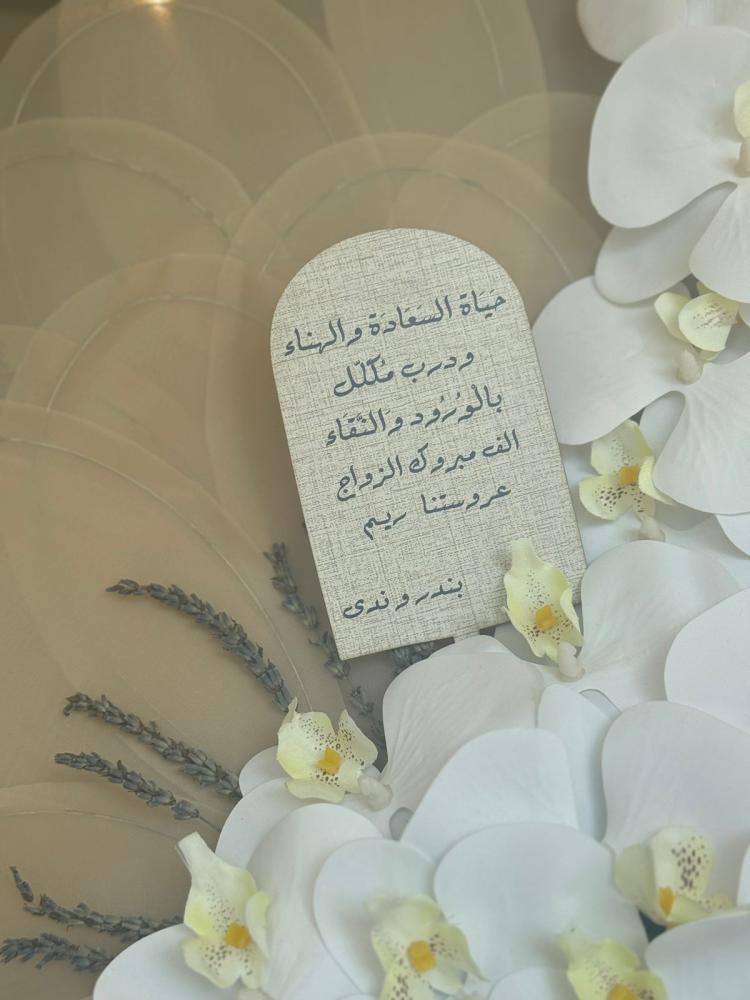 حَيَاة السَعَادَة والهناء
ودرب مُكلّل
بالْورُرُود وَالنَّقَاء
الف مبروك الزواج
عروستنا ريم
بندر و ندى